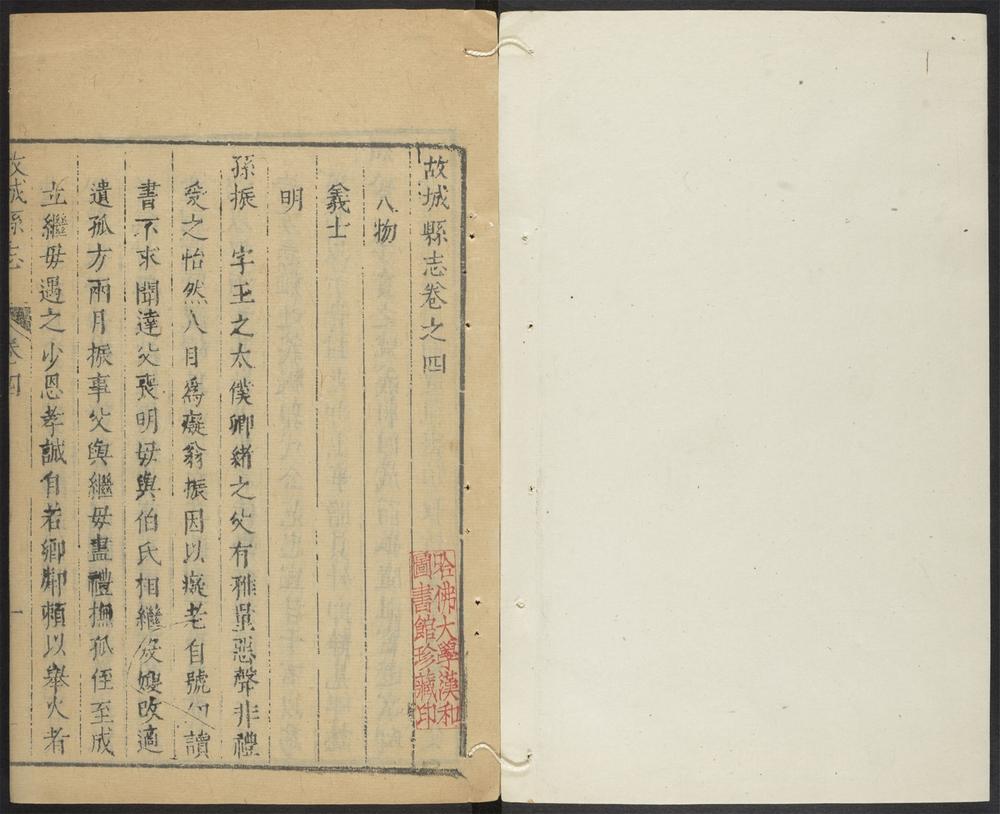 故城縣志卷之四
人物
義士
明
孫振 字玉之太僕卿緒之父有雅量惡聲非禮
受之怡然人目爲癡翁振因以癡老自號幼讀
書不求聞達父喪明母與伯氏相繼歿嫂改適
遺孤方兩月振事父與繼母盡禮撫孤侄至成
立繼母遇之少恩孝誠自若鄉鄰頼以舉火者
故城縣志 卷四 一
哈佛大學漢和
圖書館珍藏印